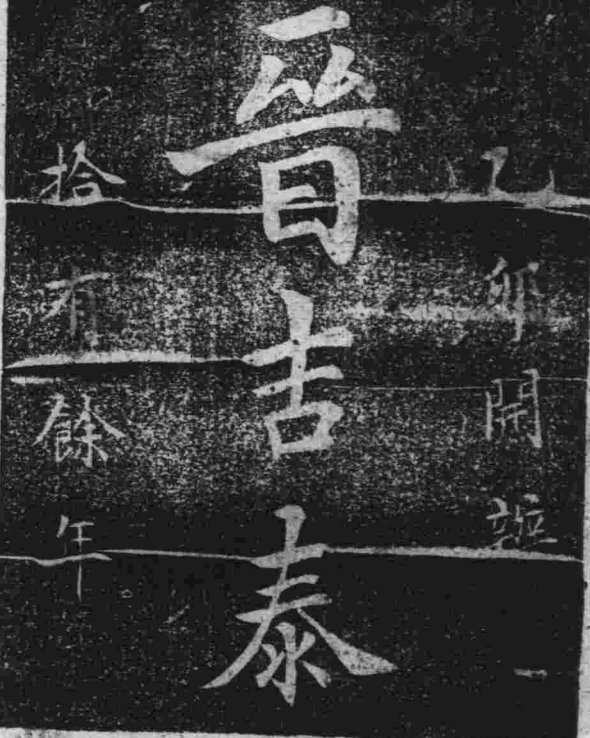 乙卯開辦一
晉吉泰
拾有餘年